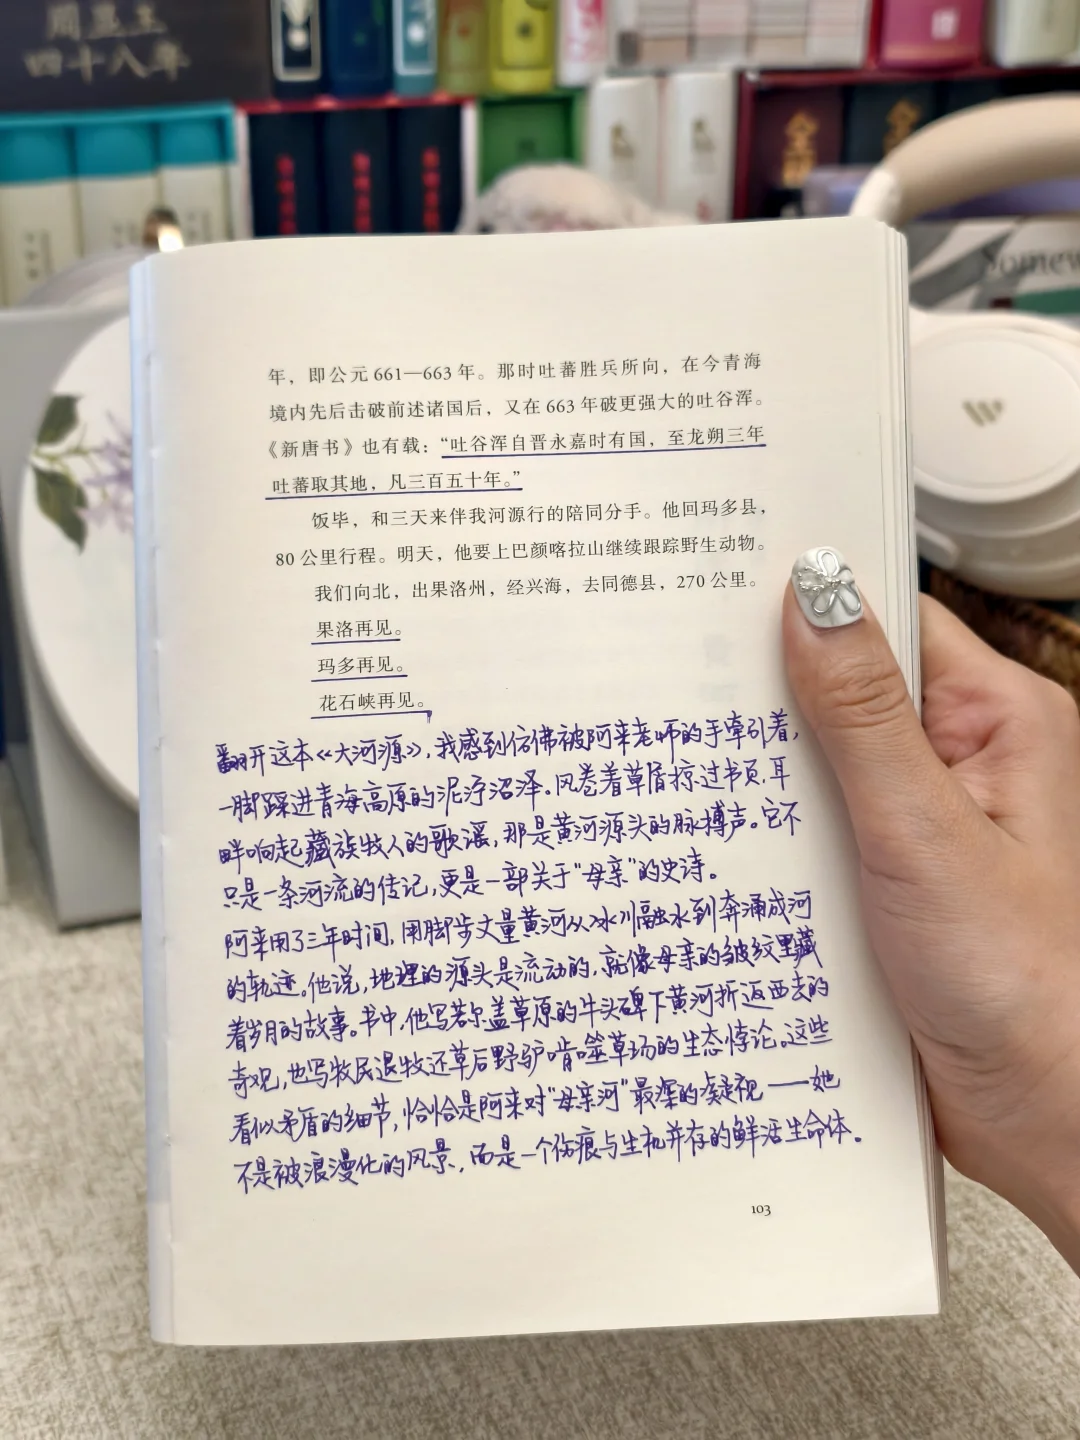 周显王
四十八年
Somew
年，即公元 661—663 年。那时吐蕃胜兵所向，在今青海
境内先后击破前述诸国后，又在 663 年破更强大的吐谷浑。
《新唐书》也有载：“吐谷浑自晋永嘉时有国，至龙朔三年
吐蕃取其地，凡三百五十年。”
饭毕，和三天来伴我河源行的陪同分手。他回玛多县，
80 公里行程。明天，他要上巴颜喀拉山继续跟踪野生动物。
我们向北，出果洛州，经兴海，去同德县，270 公里。
果洛再见。
玛多再见。
花石峡再见。
翻开这本《大河源》，我感到仿佛被阿来老师的手牵引着，
一脚踩进青海高原的泥泞沼泽。风卷着草屑掠过书页，耳
畔响起藏族牧人的歌谣，那是黄河源头的脉搏声。它不
只是一条河流的传记，更是一部关于“母亲”的史诗。
阿来用了三年时间，用脚步丈量黄河从冰川融水到奔涌成河
的轨迹。他说，地理的源头是流动的，就像母亲的皱纹里藏
着岁月的故事。书中，他写若尔盖草原的牛头碑下黄河折返西去的
奇观，也写牧民退牧还草后野驴啃噬草场的生态悖论。这些
看似矛盾的细节，恰恰是阿来对“母亲河”最深的凝视——她
不是被浪漫化的风景，而是一个伤痕与生机并存的鲜活生命体。
103